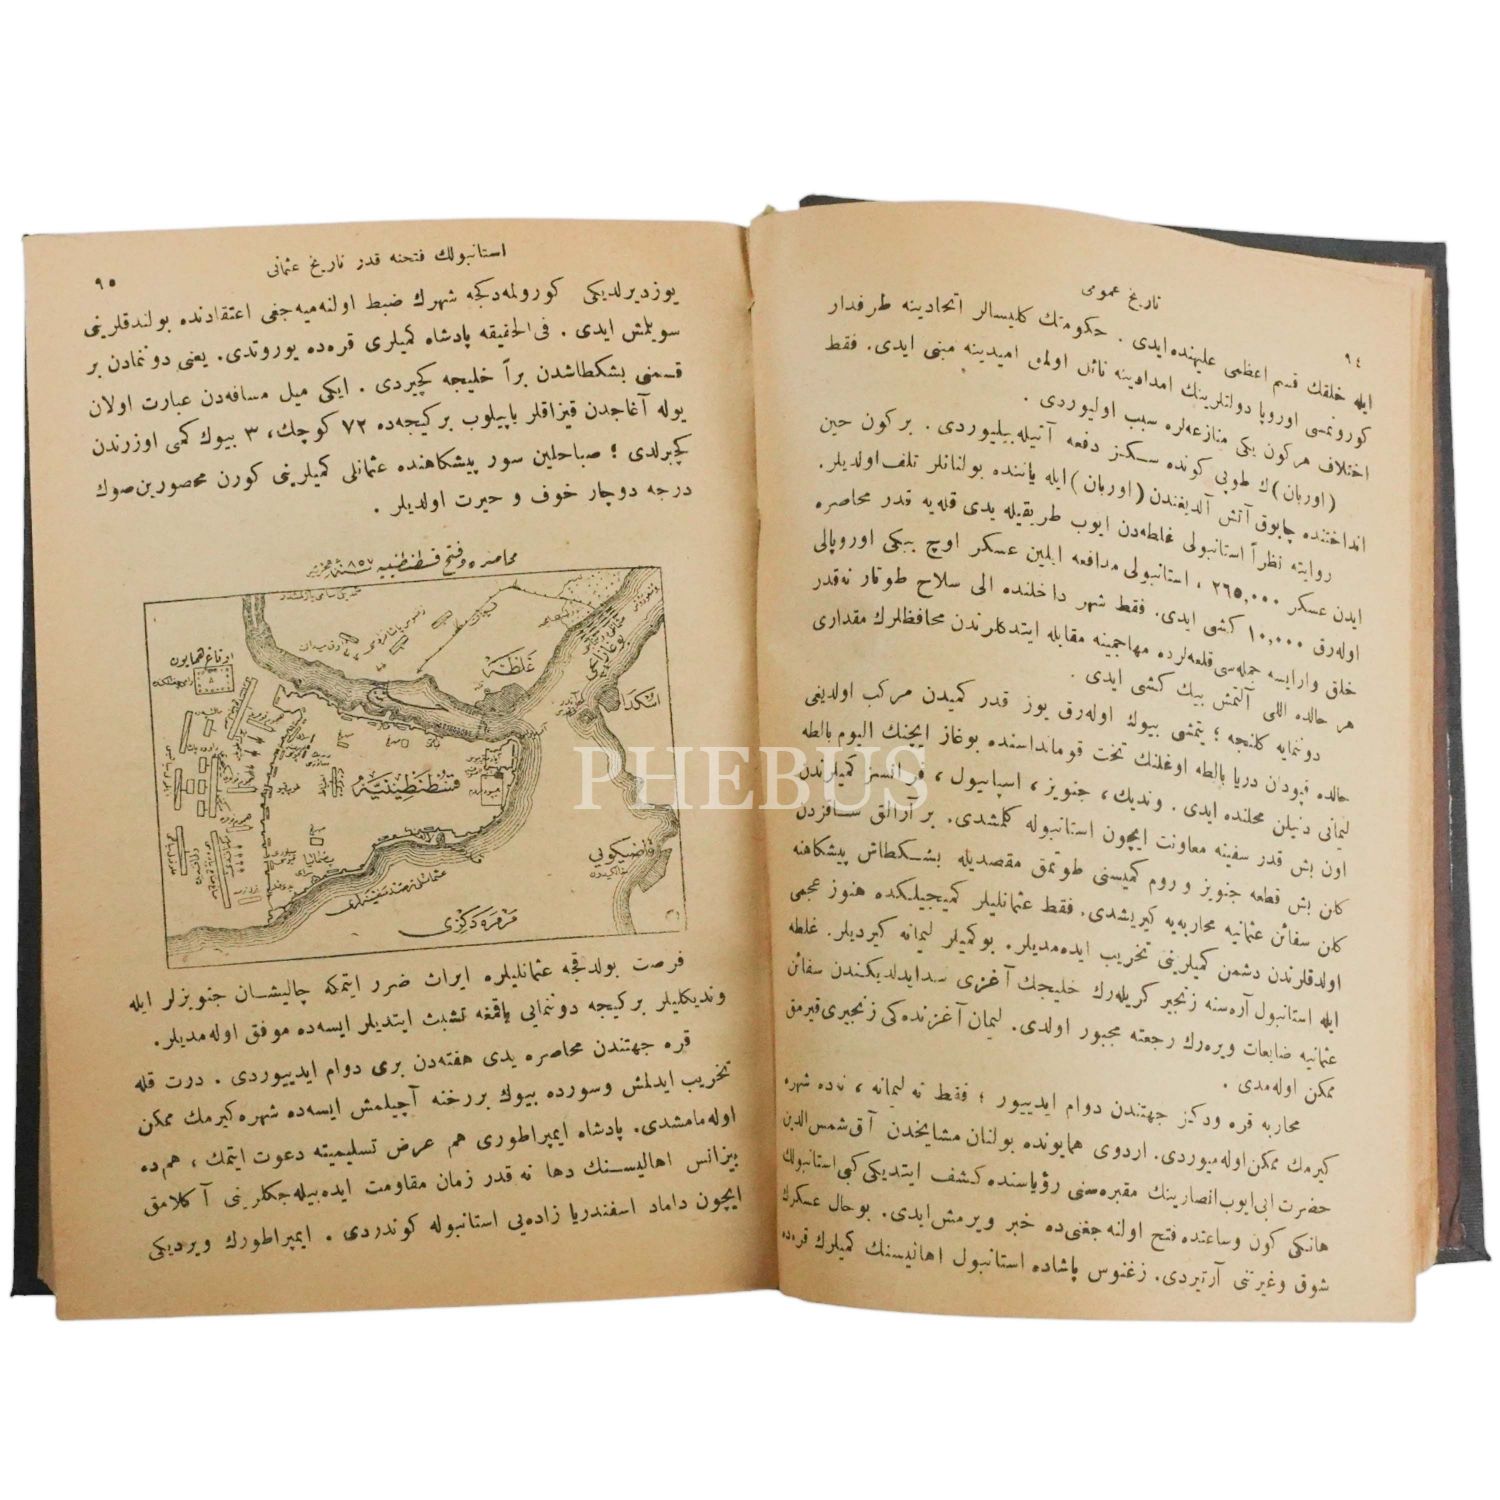 تاریخ عمومی
٩٤
ایله خلقك قسم اعظمی علیهنده ایدی . حكومتك كلیسالر اتحادینه طرفدار
كورونمسی اوروپا دولتلرینك امدادینه نائل اولمق امیدینه مبنی ایدی. فقط
اختلاف هركون یكی منازعه‌لره سبب اولیوردی .
(اوربان)ك طوپی كونده سكز دفعه آتیله‌بیلیوردی . بركون حین
انداختنده چابوق آتش آلدیغندن (اوربان) ایله یاننده بولنانلر تلف اولدیلر.
روایته نظراً استانبولی غلطه‌دن ایوب طریقیله یدی قله‌یه قدر محاصره
ایدن عسكر ٢٦٥,٠٠٠ ، استانبولی مدافعه ایلین عسكر اوچ بیكی اوروپالی
اوله‌رق ١٠,٠٠٠ كشی ایدی. فقط شهر داخلنده الی سلاح طوتار نه‌قدر
خلق وارایسه جمله‌سی قلعه‌لرده مهاجمینه مقابله ایتدكلرندن محافظلرك مقداری
هر حالده اللی آلتمش بیك كشی ایدی .
دونمایه كلنجه ؛ یتمشی بیوك اوله‌رق یوز قدر كمیدن مركب اولدیغی
حالده قپودان دریا بالطه اوغلنك تحت قومانداسنده بوغاز ایچنك الیوم بالطه
لیمانی دنیلن محلنده ایدی . وندیك ، جنویز ، اسپانیول ، فرانسز كمیلرندن
اون بش قدر سفینه معاونت ایچون استانبوله كلمشدی. بر آرالق ساقزدن
كلن بش قطعه جنویز و روم كمیسنی طوتمق مقصدیله بشكطاش پیشكاهنه
كلن سفائن عثمانیه محاربه‌یه كیریشدی. فقط عثمانلیلر كمیجیلكده هنوز عجمی
اولدقلرندن دشمن كمیلرینی تخریب ایده‌مدیلر. بوكمیلر لیمانه كیردیلر. غلطه
ایله استانبول آره‌سنه زنجیر كریله‌رك خلیجك آغزی سد ایدلدیكندن سفائن
عثمانیه ضایعات ویره‌رك رجعته مجبور اولدی. لیمان آغزنده‌كی زنجیری قیرمق
ممكن اوله‌مدی .
محاربه قره ودكیز جهتندن دوام ایدییور ؛ فقط نه لیمانه ، نه‌ده شهره
كیرمك ممكن اوله‌میوردی. اردوی همایونده بولنان مشایخدن آق شمس‌الدین
حضرت ابی‌ایوب انصارینك مقبره‌سنی رؤیاسنده كشف ایتدیكی كبی استانبولك
هانكی كون وساعتده فتح اولنه‌جغنی‌ده خبر ویرمش ایدی. بوحال عسكرك
شوق وغیرتنی آرتیردی. زغنوس پاشاده استانبول اهالیسنك كمیلرك قره‌ده
استانبولك فتحنه قدر تاریخ عثمانی
٩٥
یوزدیرلدیكی كورولمه‌دكجه شهرك ضبط اولنه‌میه‌جغی اعتقادنده بولندقلرینی
سویلمش ایدی . فی‌الحقیقه پادشاه كمیلری قره‌ده یوروتدی. یعنی دونمادن بر
قسمنی بشكطاشدن براً خلیجه كچیردی . ایكی میل مسافه‌دن عبارت اولان
یوله آغاجدن قیزاقلر یاپیلوب بركیجه‌ده ٧٢ كوچك، ٣ بیوك كمی اوزرندن
كچیرلدی ؛ صباحلین سور پیشكاهنده عثمانلی كمیلرینی كورن محصورین صوك
درجه دوچار خوف و حیرت اولدیلر .
محاصره وفتح قسطنطنیه سنه ٨٥٧
اوتاغ همایون
غلطه
اسكدار
قسطنطینیه
قاضیكویی
مرمره دكزی
فرصت بولدقجه عثمانلیلره ایراث ضرر ایتمكه چالیشان جنویزلر ایله
وندیكلیلر بركیجه دونمایی یاقمغه تشبث ایتدیلر ایسه‌ده موفق اوله‌مدیلر.
قره جهتندن محاصره یدی هفته‌دن بری دوام ایدییوردی . درت قله
تخریب ایدلمش وسورده بیوك بررخنه آچیلمش ایسه‌ده شهره كیرمك ممكن
اوله‌مامشدی. پادشاه ایمپراطوری هم عرض تسلیمیته دعوت ایتمك ، هم‌ده
بیزانس اهالیسنك دها نه قدر زمان مقاومت ایده‌بیله‌جكلرینی آكلامق
ایچون داماد اسفندریا زاده‌یی استانبوله كوندردی . ایمپراطورك ویردیكی
PHEBUS